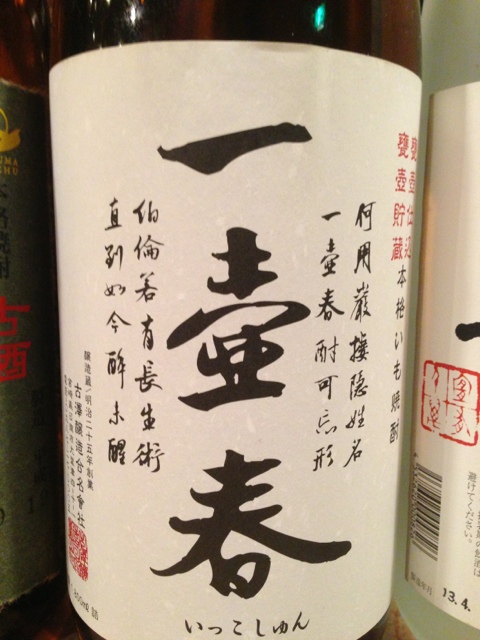 甕壺仕込
甕壺貯蔵
本格いも焼酎
何用巌棲隠姓名
一壷春酎可忘形
一壷春
いっこしゅん
伯倫若有長生術
直到如今酔未醒
醸造蔵/明治二十五年創業
古澤醸造合名會社
本格焼酎
古酒
避けてください。
製造年月 13.4.